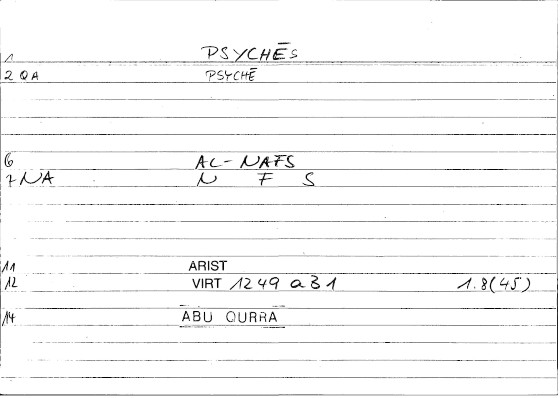 1 PSYCHĒS
2 QA PSYCHĒ
6 AL-NAFS
7 NA N F S
11 ARIST
12 VIRT 1249 a31 1.8(45)
14 ABU QURRA